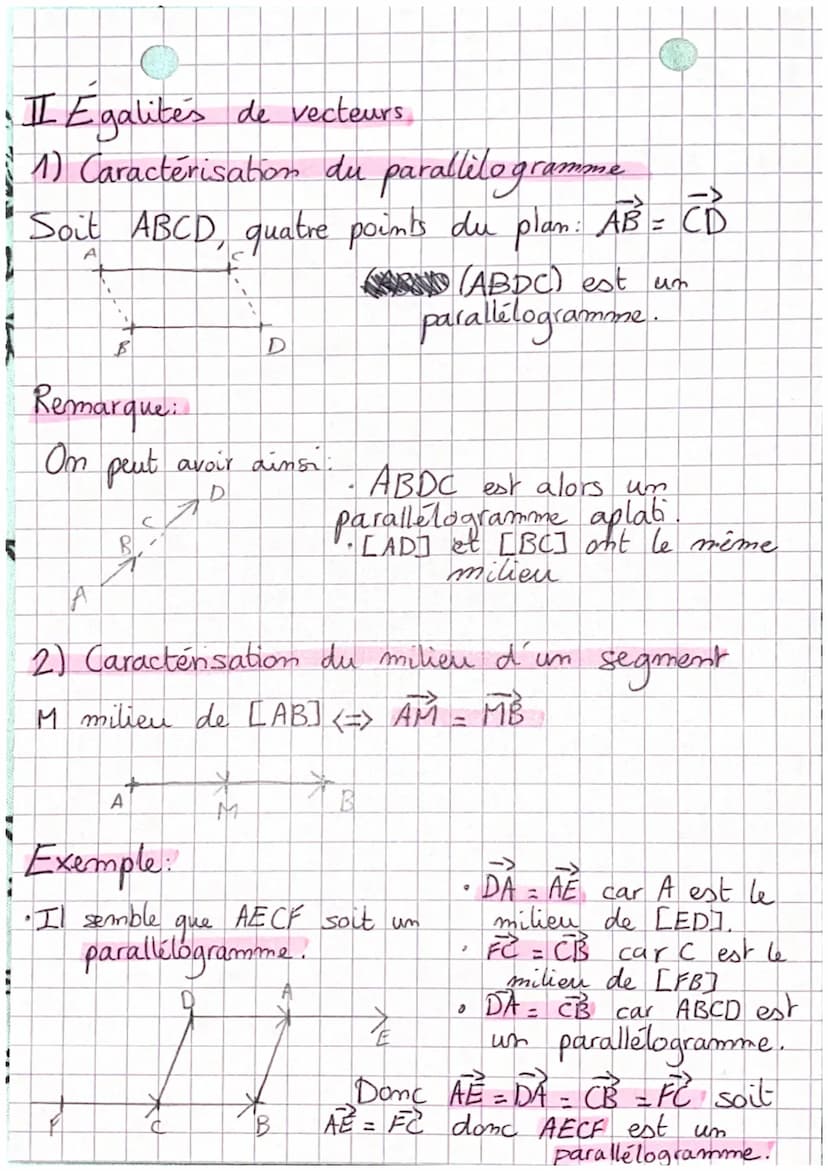 II Égalités de vecteurs
1) Caractérisation du parallélogramme
Soit ABCD, quatre points du plan: AB⃗ = CD⃗
A C
(ABDC) est un
parallélogramme.
B D
Remarque:
On peut avoir ainsi:
· ABDC est alors un
parallélogramme aplati.
· [AD] et [BC] ont le même
milieu
D
C
B
A
2) Caractérisation du milieu d'un segment
M milieu de [AB] <=> AM⃗ = MB⃗
A M B
Exemple:
· Il semble que AECF soit un
parallélogramme.
· DA⃗ = AE⃗ car A est le
milieu de [ED].
· FC⃗ = CB⃗ car C est le
milieu de [FB]
• DA⃗ = CB⃗ car ABCD est
un parallélogramme.
D A
E
F C B
Donc AE⃗ = DA⃗ = CB⃗ = FC⃗ soit
AE⃗ = FC⃗ donc AECF est un
parallélogramme.